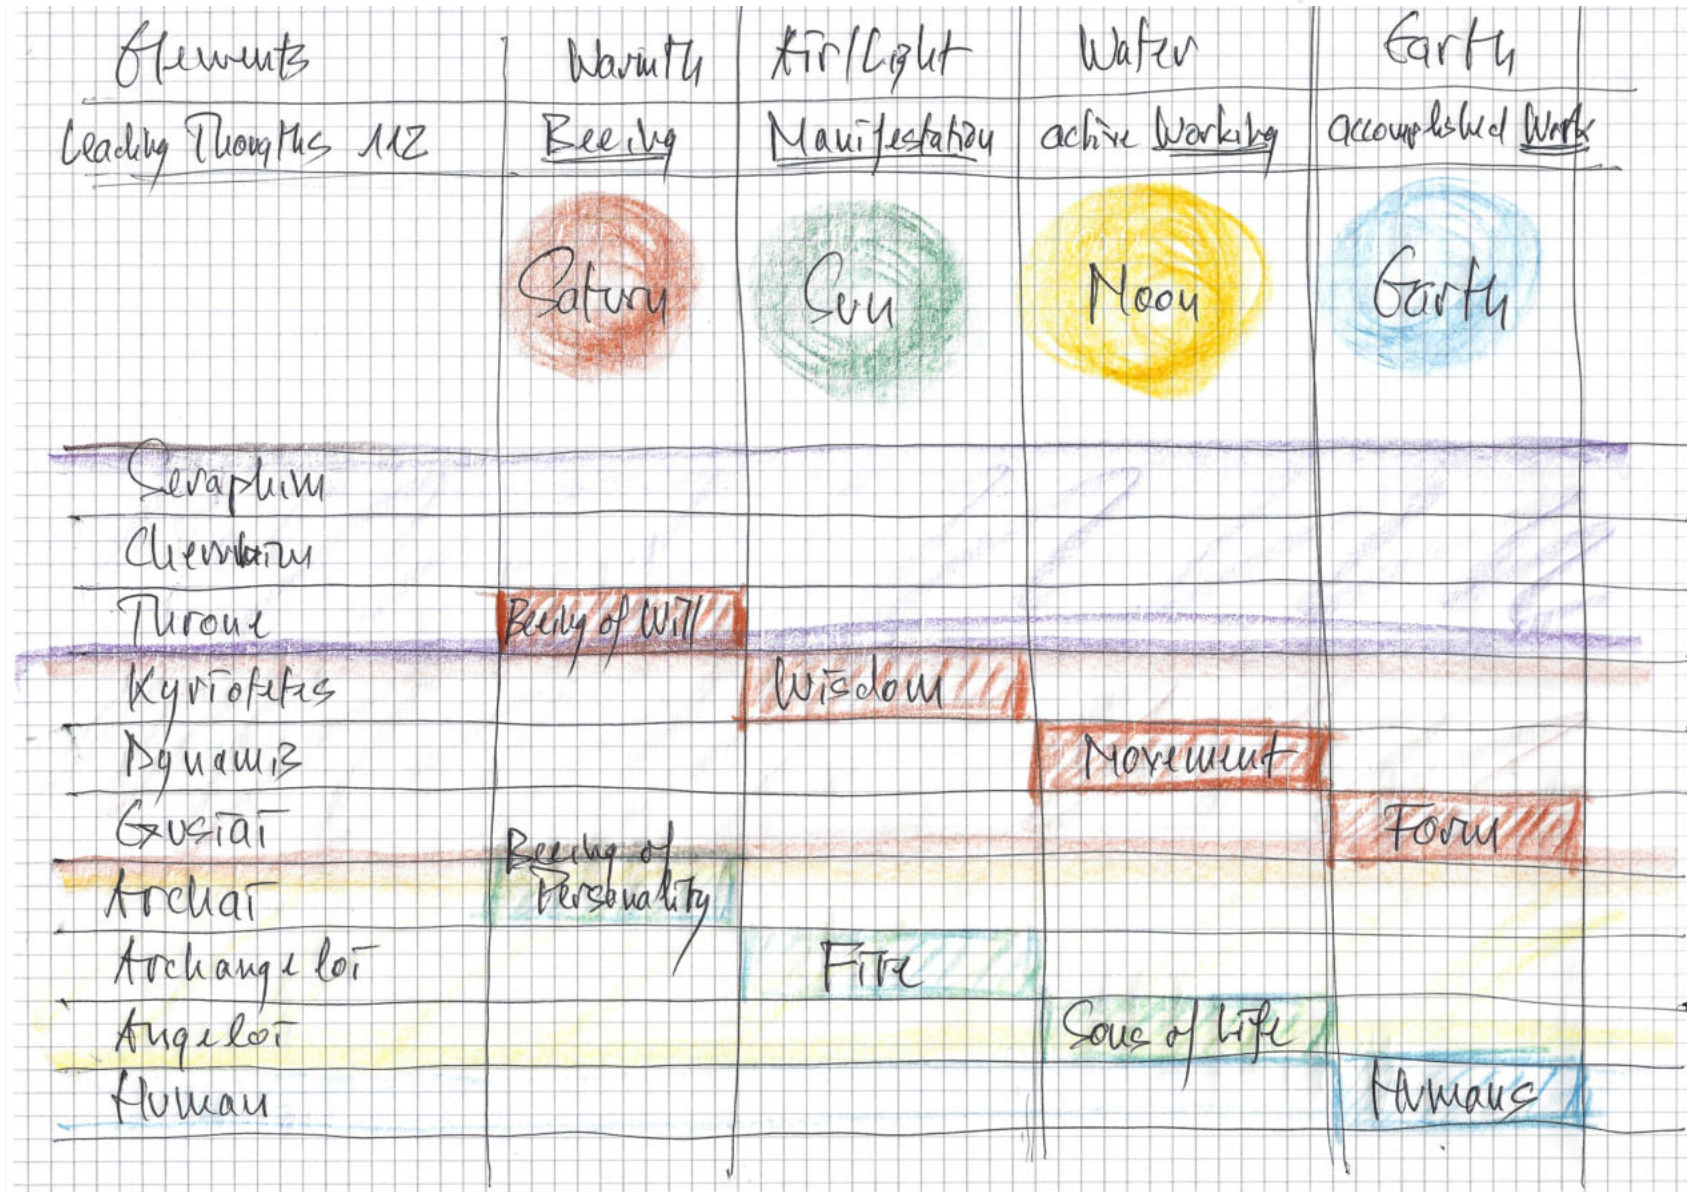 Elements Warmth Air/Light Water Earth
Leading Thougths 112 Beeing Manifestation active Working accomplished Work
Saturn Sun Moon Earth
Seraphim
Cherubim
Throne Beeing of Will
Kyriotetes Wisdom
Dynamis Movement
Exusiai Form
Beeing of
Archai Personality
Archangeloi Fire
Angeloi Sons of Life
Human Humans